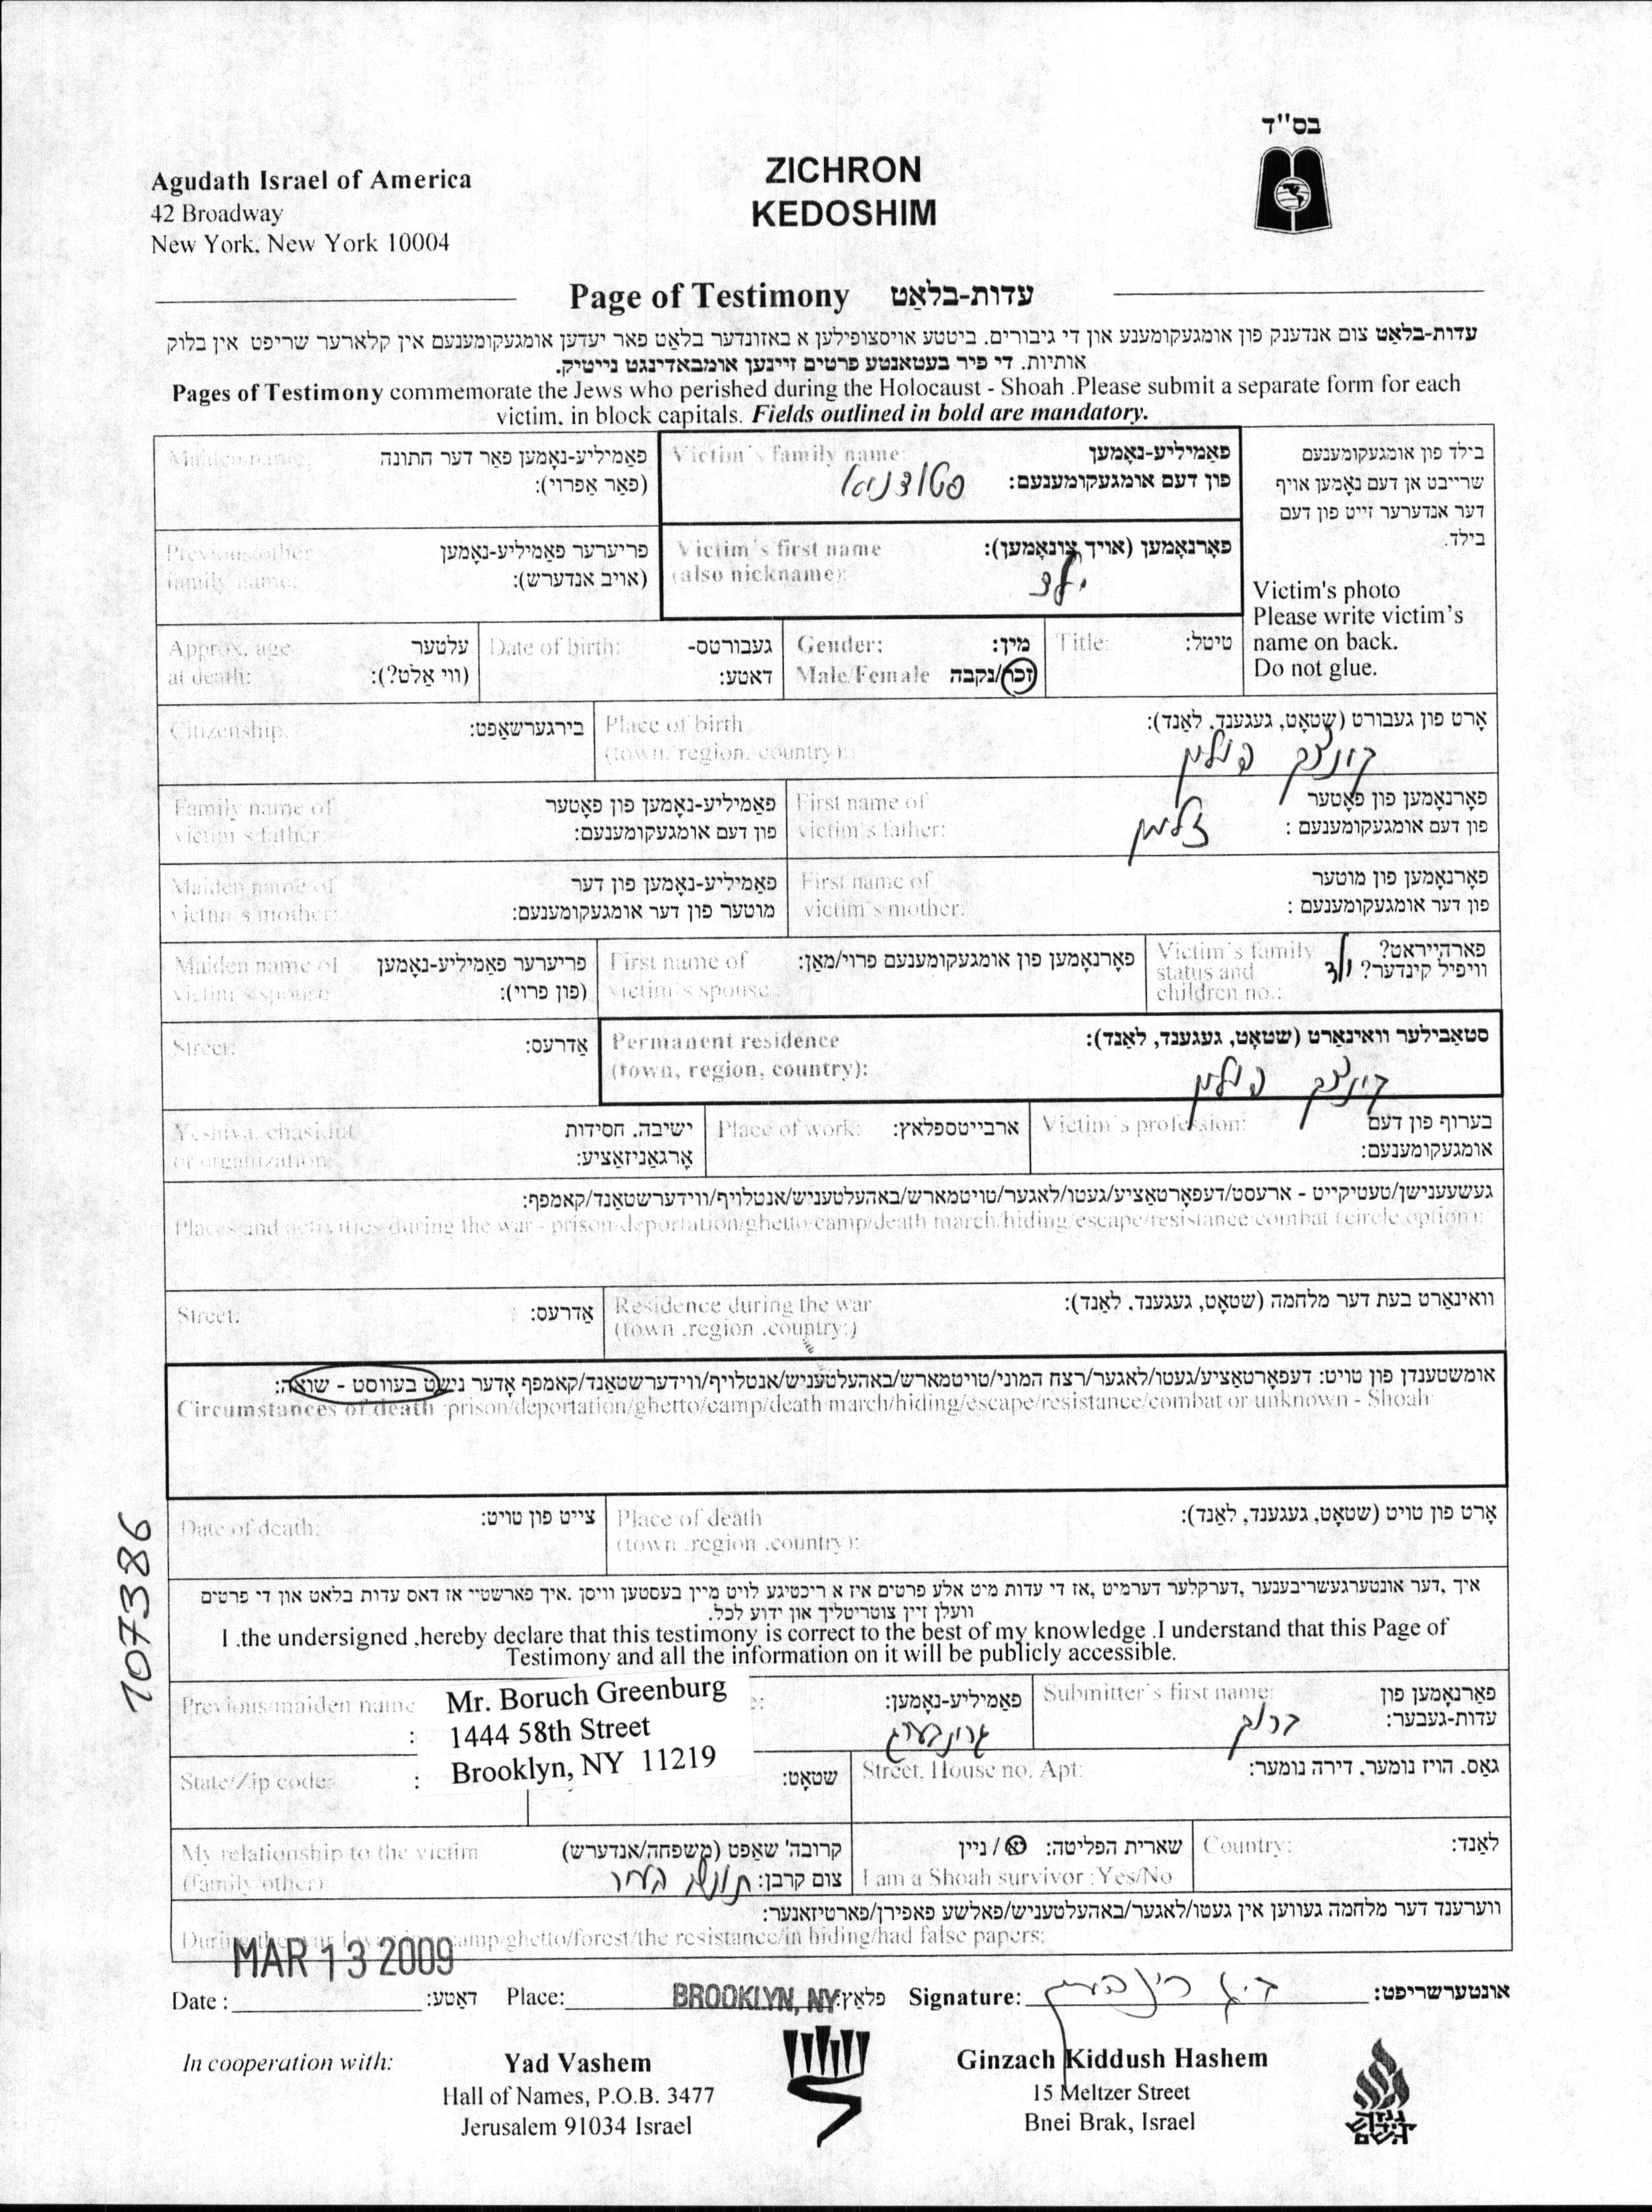 בס"ד
Agudath Israel of America
42 Broadway
New York, New York 10004
ZICHRON
KEDOSHIM
Page of Testimony עדות-בלאַט
עדות-בלאַט צום אנדענק פון אומגעקומענע און די גיבורים. ביטטע אויסצופילען א באזונדער בלאַט פאר יעדען אומגעקומענעם אין קלארער שריפט אין בלוק
אותיות. די פיר בעטאנטע פרטים זיינען אומבאדינגט נייטיק.
Pages of Testimony commemorate the Jews who perished during the Holocaust - Shoah .Please submit a separate form for each
victim. in block capitals. Fields outlined in bold are mandatory.
בילד פון אומגעקומענעם
שרייבט אן דעם נאָמען אויף
דער אנדערער זייט פון דעם
בילד.
Victim's photo
Please write victim's
name on back.
Do not glue.
Victim's family name: פאַמיליע-נאָמען
פון דעם אומגעקומענעם:
Maiden name: פאַמיליע-נאָמען פאַר דער חתונה
(פאַר אַפרוי):
Victim's first name פאָרנאָמען (אויך צונאָמען):
(also nickname):
ילד
Previous/other פריערער פאַמיליע-נאָמען
family name: (אויב אנדערש):
Title: טיטל:
Gender: מין:
Male/Female זכר/נקבה
Date of birth: געבורטס-
דאטע:
Approx. age עלטער
at death: (ווי אַלט?):
Place of birth אָרט פון געבורט (שטאָט, געגענד, לאַנד):
(town, region, country):
פולין
Citizenship: בירגערשאַפט:
First name of פאָרנאָמען פון פאָטער
victim's father: פון דעם אומגעקומענעם :
זלמן
Family name of פאַמיליע-נאָמען פון פאָטער
victim's father: פון דעם אומגעקומענעם:
First name of פאָרנאָמען פון מוטער
victim's mother: פון דער אומגעקומענעם :
Maiden name of פאַמיליע-נאָמען פון דער
victim's mother: מוטער פון דער אומגעקומענעם:
Victim's family פארהייראט?
status and וויפיל קינדער? ילד
children no.:
First name of פאָרנאָמען פון אומגעקומענעם פרוי/מאַן:
victim's spouse:
Maiden name of פריערער פאַמיליע-נאָמען
victim's spouse (פון פרוי):
Permanent residence סטאַבילער וואינאָרט (שטאָט, געגענד, לאַנד):
(town, region, country):
פולין
Street: אַדרעס:
Victim's profession: בערוף פון דעם
אומגעקומענעם:
Place of work: ארבייטספלאץ:
Yeshiva, chasidut ישיבה. חסידות
or organization: אָרגאַניזאַציע:
געשעענישן/טעטיקייט - ארעסט/דעפאָרטאַציע/געטו/לאגער/טויטמארש/באהעלטעניש/אנטלויף/ווידערשטאַנד/קאמפף:
Places and activities during the war - prison/deportation/ghetto/camp/death march/hiding/escape/resistance/combat (circle option):
Residence during the war וואינאָרט בעת דער מלחמה (שטאָט, געגענד. לאַנד):
(town .region .country:)
Street: אַדרעס:
אומשטענדן פון טויט: דעפאָרטאַציע/געטו/לאגער/רצח המוני/טויטמארש/באהעלטעניש/אנטלויף/ווידערשטאַנד/קאמפף אָדער נישט בעווסט - שואה:
Circumstances of death :prison/deportation/ghetto/camp/death march/hiding/escape/resistance/combat or unknown - Shoah
Place of death אָרט פון טויט (שטאָט, געגענד, לאַנד):
(town .region .country):
Date of death: צייט פון טויט:
107386
איך ,דער אונטערגעשריבענער ,דערקלער דערמיט ,אז די עדות מיט אלע פרטים איז א ריכטיגע לויט מיין בעסטען וויסן .איך פארשטיי אז דאס עדות בלאט און די פרטים
וועלן זיין צוטריטליך און ידוע לכל.
I .the undersigned ,hereby declare that this testimony is correct to the best of my knowledge .I understand that this Page of
Testimony and all the information on it will be publicly accessible.
Submitter's first name: פאַרנאָמען פון
עדות-געבער:
ברוך
פאַמיליע-נאָמען:
גרינבערג
Previous/maiden name
Mr. Boruch Greenburg
1444 58th Street
Brooklyn, NY 11219
Street, House no. Apt: גאַס. הויז נומער. דירה נומער:
שטאָט:
State/Zip code:
Country: לאַנד:
שארית הפליטה: / ניין
I am a Shoah survivor :Yes/No
My relationship to the victim קרובה' שאַפט (משפחה/אנדערש)
(family/other) צום קרבן: תושב העיר
ווערענד דער מלחמה געווען אין געטו/לאגער/באהעלטעניש/פאלשע פאפירן/פארטיזאנער:
During the war I was in camp/ghetto/forest/the resistance/in hiding/had false papers:
MAR 13 2009
Date : דאַטע: Place: BROOKLYN, NY פלאַץ: Signature: אונטערשריפט:
In cooperation with:
Yad Vashem
Hall of Names, P.O.B. 3477
Jerusalem 91034 Israel
Ginzach Kiddush Hashem
15 Meltzer Street
Bnei Brak, Israel
גנזך
קידוש
השם